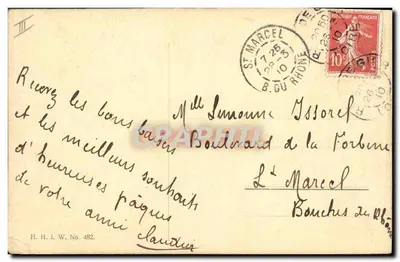 III
ST MARCEL
7 25
28-3
10
B. DU RHONE
10
Recevez les bons baisers
et les meilleurs souhaits
d'heureuses pâques
de votre ami
Mlle Simonne Issorel
Boulevard de la Forbine
St Marcel
Bouches du Rhône
H. H. i. W. No. 482.